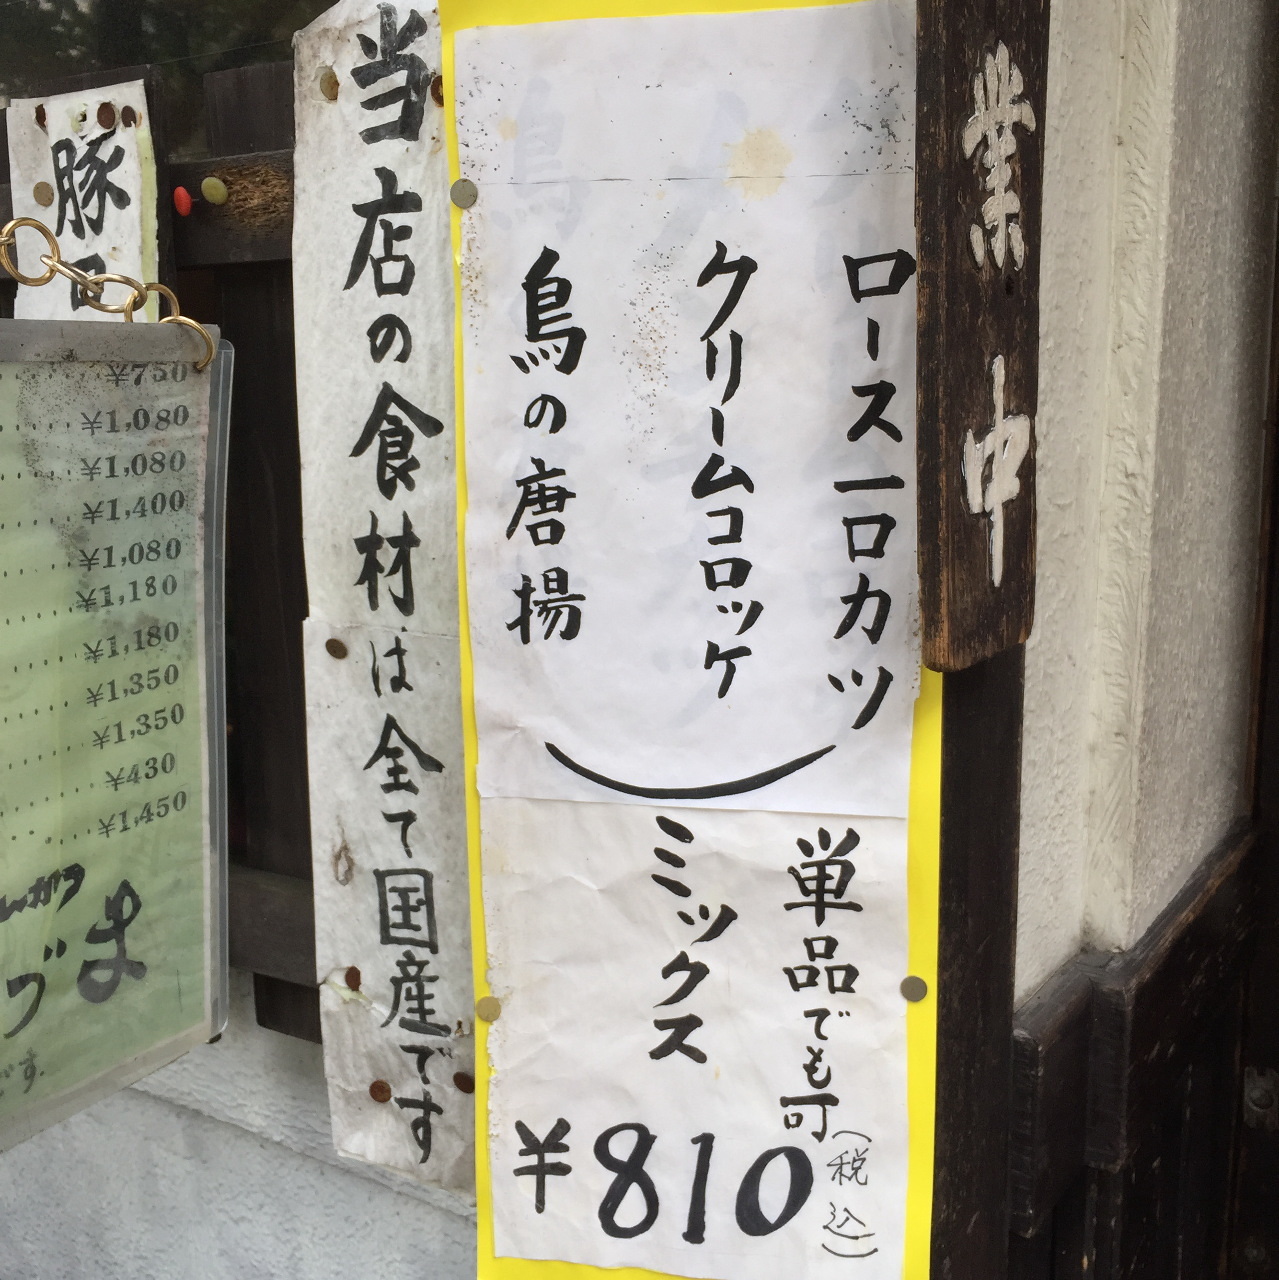 業中
ロース一口カツ
クリームコロッケ
鳥の唐揚
ミックス
単品でも可
¥810
(税込)
当店の食材は全て国産です
豚
¥750
¥1,080
¥1,080
¥1,400
¥1,080
¥1,180
¥1,180
¥1,350
¥1,350
¥430
¥1,450
づま
です.